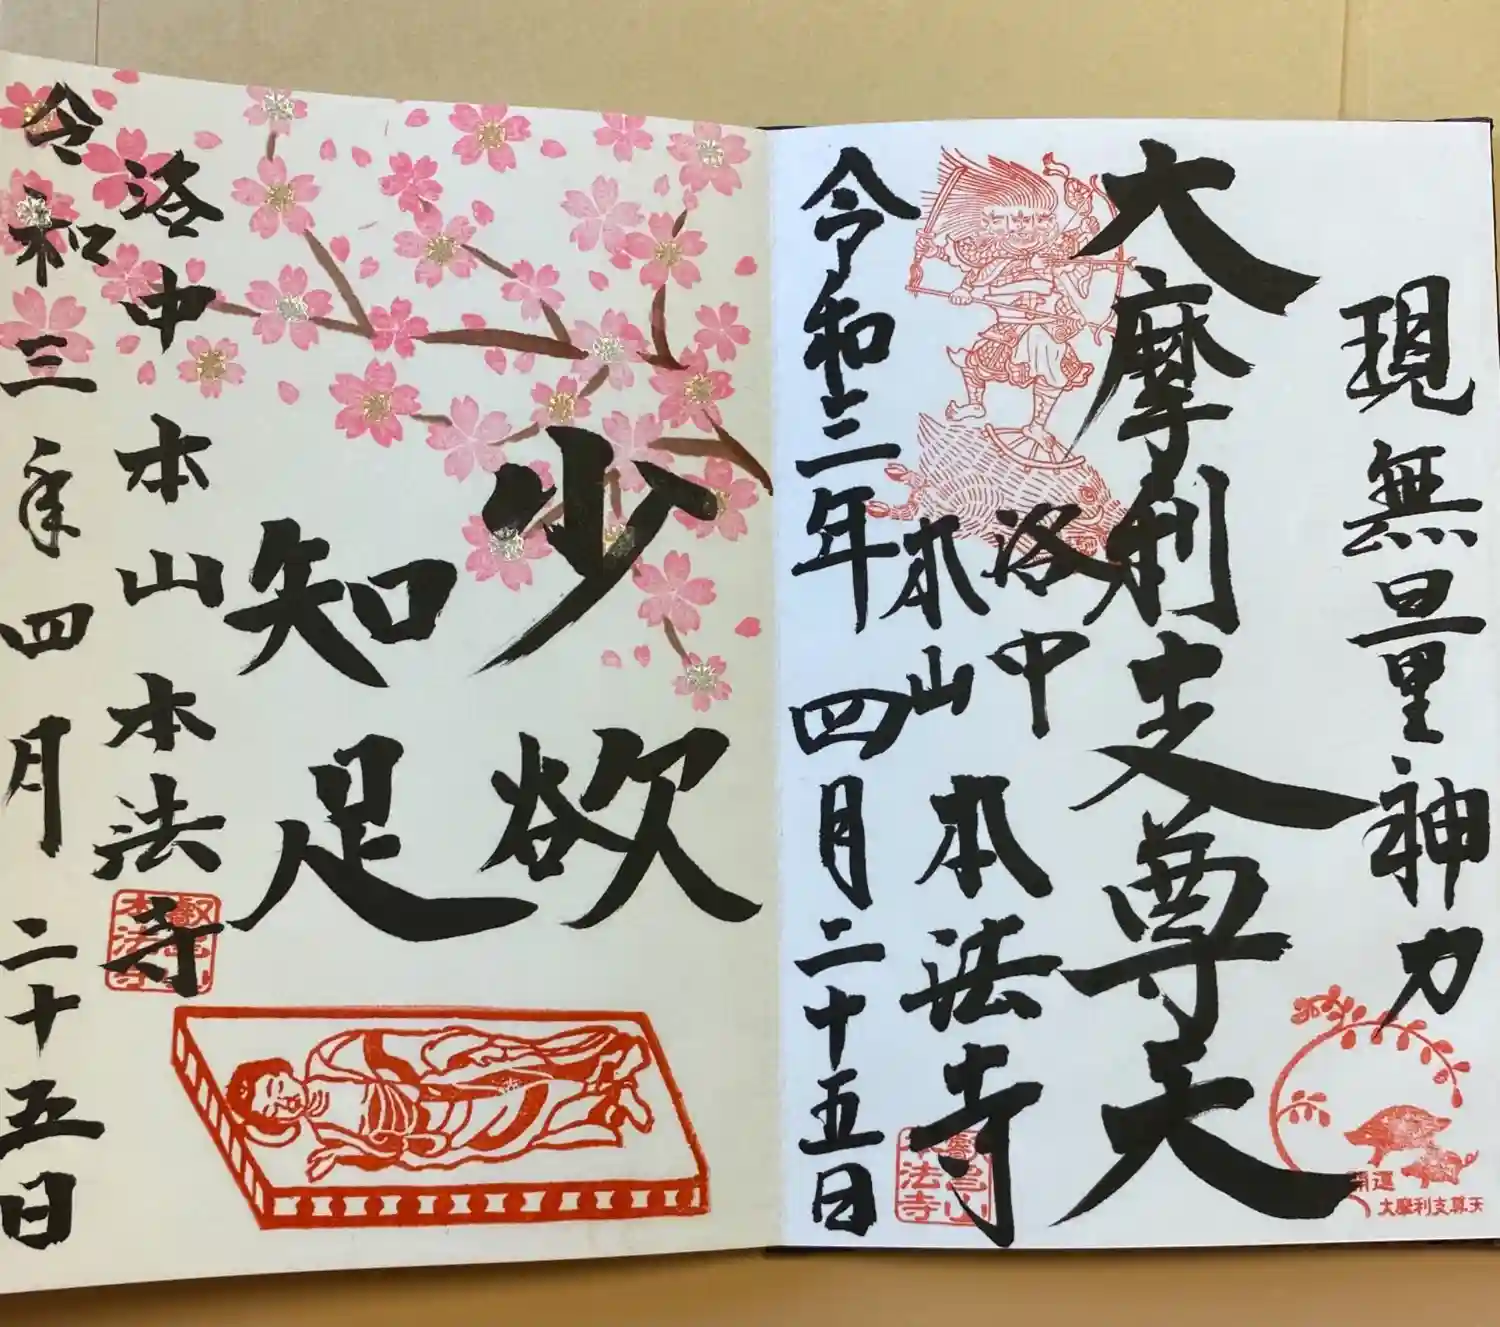 現無量神力
大摩利支尊天
洛中
本山 本法寺
令和三年四月二十五日
開運
大摩利支尊天
少欲
知足
洛中 本山 本法寺
令和三年四月二十五日